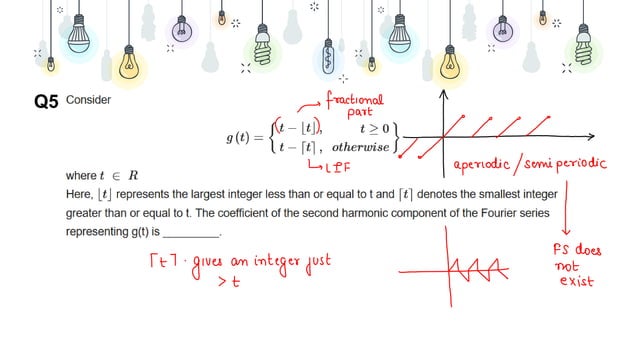 Q5 Consider
fractional
part
g(t) = { (t − ⌊t⌋), t ≥ 0
t − ⌈t⌉, otherwise }
LIF
aperiodic / semi periodic
where t ∈ R
Here, ⌊t⌋ represents the largest integer less than or equal to t and ⌈t⌉ denotes the smallest integer
greater than or equal to t. The coefficient of the second harmonic component of the Fourier series
representing g(t) is __________.
FS does
not
exist
⌈t⌉ · gives an integer just
> t